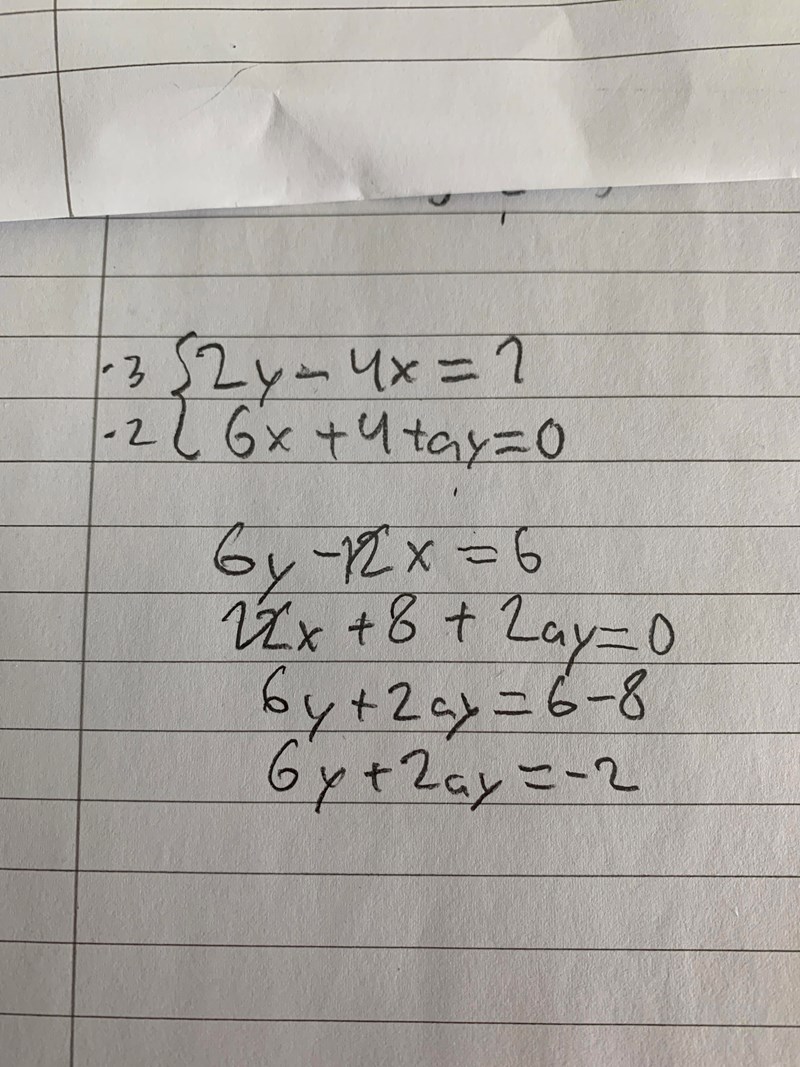 ·3 {2y - 4x = 2
·2 { 6x + 4 + ay = 0
6y - 12x = 6
12x + 8 + 2ay = 0
6y + 2ay = 6 - 8
6y + 2ay = -2